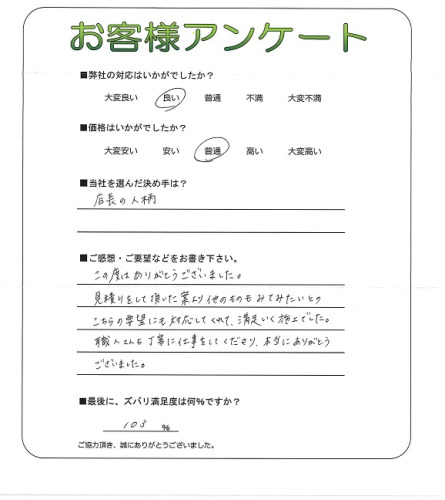 お客様アンケート
■弊社の対応はいかがでしたか？
大変良い 良い 普通 不満 大変不満
■価格はいかがでしたか？
大変安い 安い 普通 高い 大変高い
■当社を選んだ決め手は？
店長の人柄
■ご感想・ご要望などをお書き下さい。
この度はありがとうございました。
見積りをして頂いた案より他のものもみてみたいとの
こちらの要望にも対応してくれて、満足いく施工でした。
職人さんも丁寧に仕事をしてくださり、本当にありがとう
ございました。
■最後に、ズバリ満足度は何%ですか？
103 %
ご協力頂き、誠にありがとうございました。